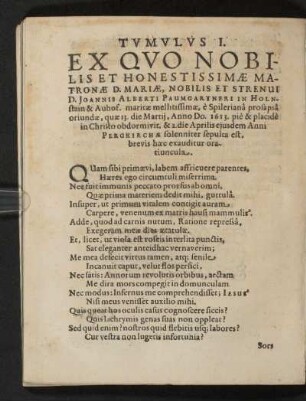 TVMVLVS I.
EX QVO NOBI-
LIS ET HONESTISSIMÆ MA-
TRONÆ D. MARIÆ, NOBILIS ET STRENVI
D. JOANNIS ALBERTI PAUMGARTNERI IN HOLN-
stein & Auhof. maritæ mellitissimæ, è Spileriana prosapiâ
oriundæ, quæ 13. die Martij, Anno Do. 1613. piè & placidè
in Christo obdormivit, & 2. die Aprilis ejusdem Anni
PERGKIRCHÆ solenniter sepulta est,
brevis hæc exauditur ora-
tiuncula.
QUam sibi primævi, labem ascivere parentes,
Hæres ego circumtuli miserrima.
Nec fuit immunis peccato prorsus ab omni,
Quæ prima materiem dedit mihi, guttula.
Insuper, ut primum vitalem contigit auram
Carpere, venenum ex matris hausi mammulis.
Adde, quod ad carnis nutum, Ratione repressâ,
Exegeram meæ dies ætatulæ.
Et, licet, ut viola est roseis interlita punctis,
Sat eleganter anteidhac vernaverim;
Me mea defecit virtus tamen, atq; senile
Incanuit caput, velut flos persici,
Nec satis: Annorum revolutis orbibus, arctam
Me dira mors compegit in domunculam
Nec modus: Infernus me comprehendisset; IESUS
Nisi meus venisset auxilio mihi.
Quis queat hos oculis casus cognoscere siccis?
Quis lachrymis genas suas non oppleat?
Sed quid enim? nostros quid flebitis usq; labores?
Cur vestra non lugetis infortunia?
Sors